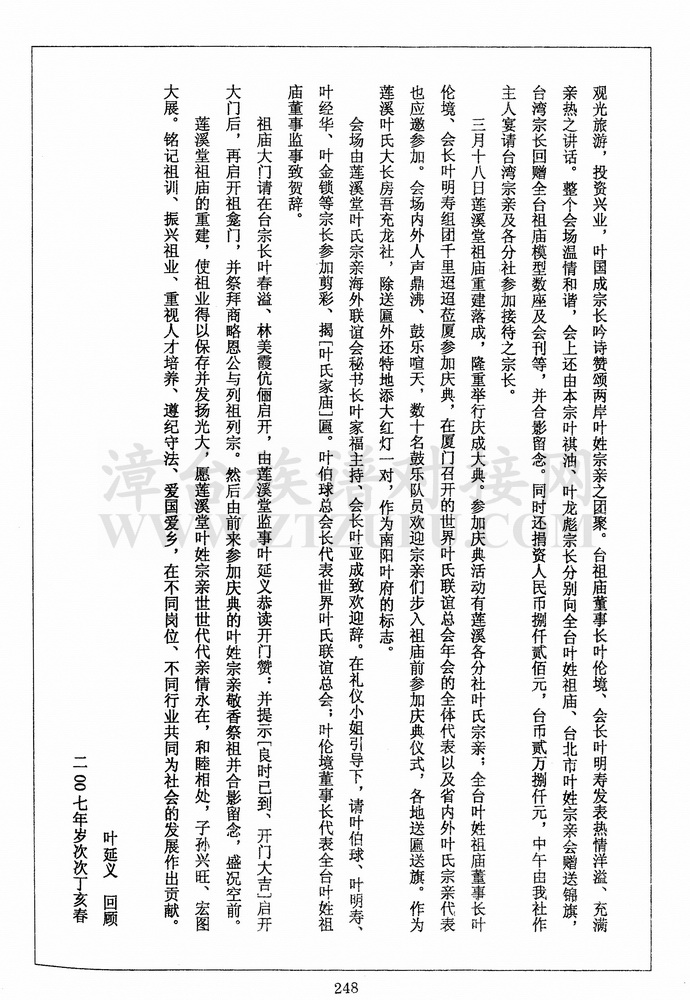 观光旅游，投资兴业，叶国成宗长吟诗赞颂两岸叶姓宗亲之团聚。台祖庙董事长叶伦境、会长叶明寿发表热情洋溢、充满
亲热之讲话。整个会场温情和谐，会上还由本宗叶祺油、叶龙彪宗长分别向全台叶姓祖庙、台北市叶姓宗亲会赠送锦旗，
台湾宗长回赠全台祖庙模型数座及会刊等，并合影留念。同时还捐资人民币捌仟贰佰元，台币贰万捌仟元，中午由我社作
主人宴请台湾宗亲及各分社参加接待之宗长。
三月十八日莲溪堂祖庙重建落成，隆重举行庆成大典。参加庆典活动有莲溪各分社叶氏宗亲；全台叶姓祖庙董事长叶
伦境、会长叶明寿组团千里迢迢莅厦参加庆典，在厦门召开的世界叶氏联谊总会年会的全体代表以及省内外叶氏宗亲代表
也应邀参加。会场内外人声鼎沸、鼓乐喧天，数十名鼓乐队员欢迎宗亲们步入祖庙前参加庆典仪式，各地送匾送旗。作为
莲溪叶氏大长房吾充龙社，除送匾外还特地添大红灯一对，作为南阳叶府的标志。
会场由莲溪堂叶氏宗亲海外联谊会秘书长叶家福主持、会长叶亚成致欢迎辞。在礼仪小姐引导下，请叶伯球、叶明寿、
叶经华、叶金锁等宗长参加剪彩、揭[叶氏家庙]匾。叶伯球总会长代表世界叶氏联谊总会；叶伦境董事长代表全台叶姓祖
庙董事监事致贺辞。
祖庙大门请在台宗长叶春溢、林美霞伉俪启开，由莲溪堂监事叶延义恭读开门赞：并提示[良时已到、开门大吉]启开
大门后，再启开祖龛门，并祭拜商略恩公与列祖列宗。然后由前来参加庆典的叶姓宗亲敬香祭祖并合影留念，盛况空前。
莲溪堂祖庙的重建，使祖业得以保存并发扬光大，愿莲溪堂叶姓宗亲世世代代亲情永在，和睦相处，子孙兴旺、宏图
大展。铭记祖训、振兴祖业、重视人才培养、遵纪守法、爱国爱乡，在不同岗位、不同行业共同为社会的发展作出贡献。
叶延义 回顾
二00七年岁次次丁亥春
248
漳台族谱对接网
WWW.ZTZUPU.COM